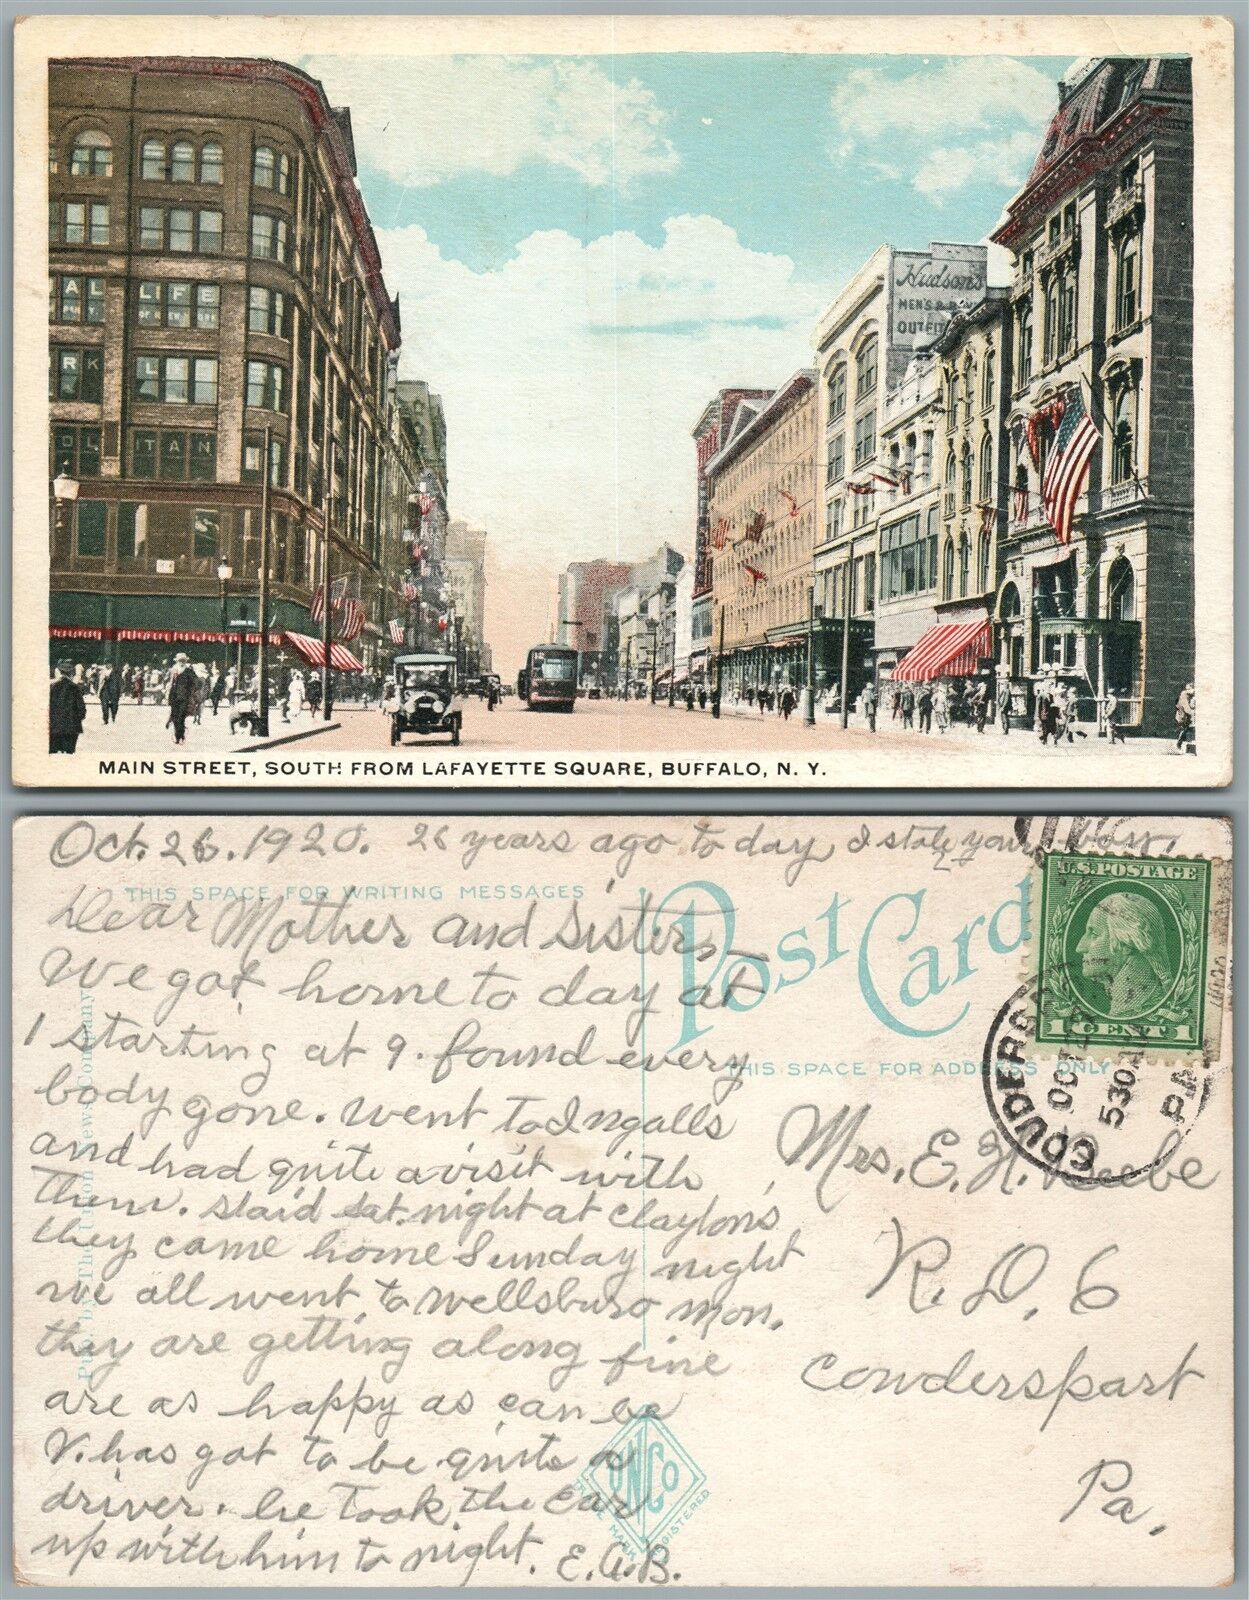 AL LIFE
RK LIFE
OLITAN
Hudson's
MEN'S & BOYS
OUTFIT
MAIN STREET, SOUTH FROM LAFAYETTE SQUARE, BUFFALO, N. Y.
Oct. 26. 1920. 26 years ago to day I stole your boy.
THIS SPACE FOR WRITING MESSAGES
Post Card
U.S. POSTAGE
1 CENTS 1
THIS SPACE FOR ADDRESS ONLY
COUDERSPORT PA
OCT
530
Dear Mother and Sisters—
We got home to day at
1 starting at 9. found every
body gone. Went to Ingalls
and had quite a visit with
them. Staid Sat. night at Claytons
they came home Sunday night
we all went to Wellsburo Mon.
they are getting along fine
are as happy as can be
V. has got to be quite a
driver. he took the car
up with him to night. E.A.B.
Mrs. E. H. Beebe
R. D. 6
Cowderspart
Pa.
Pub. by The Union News Company
UNCO
TRADE MARK REGISTERED